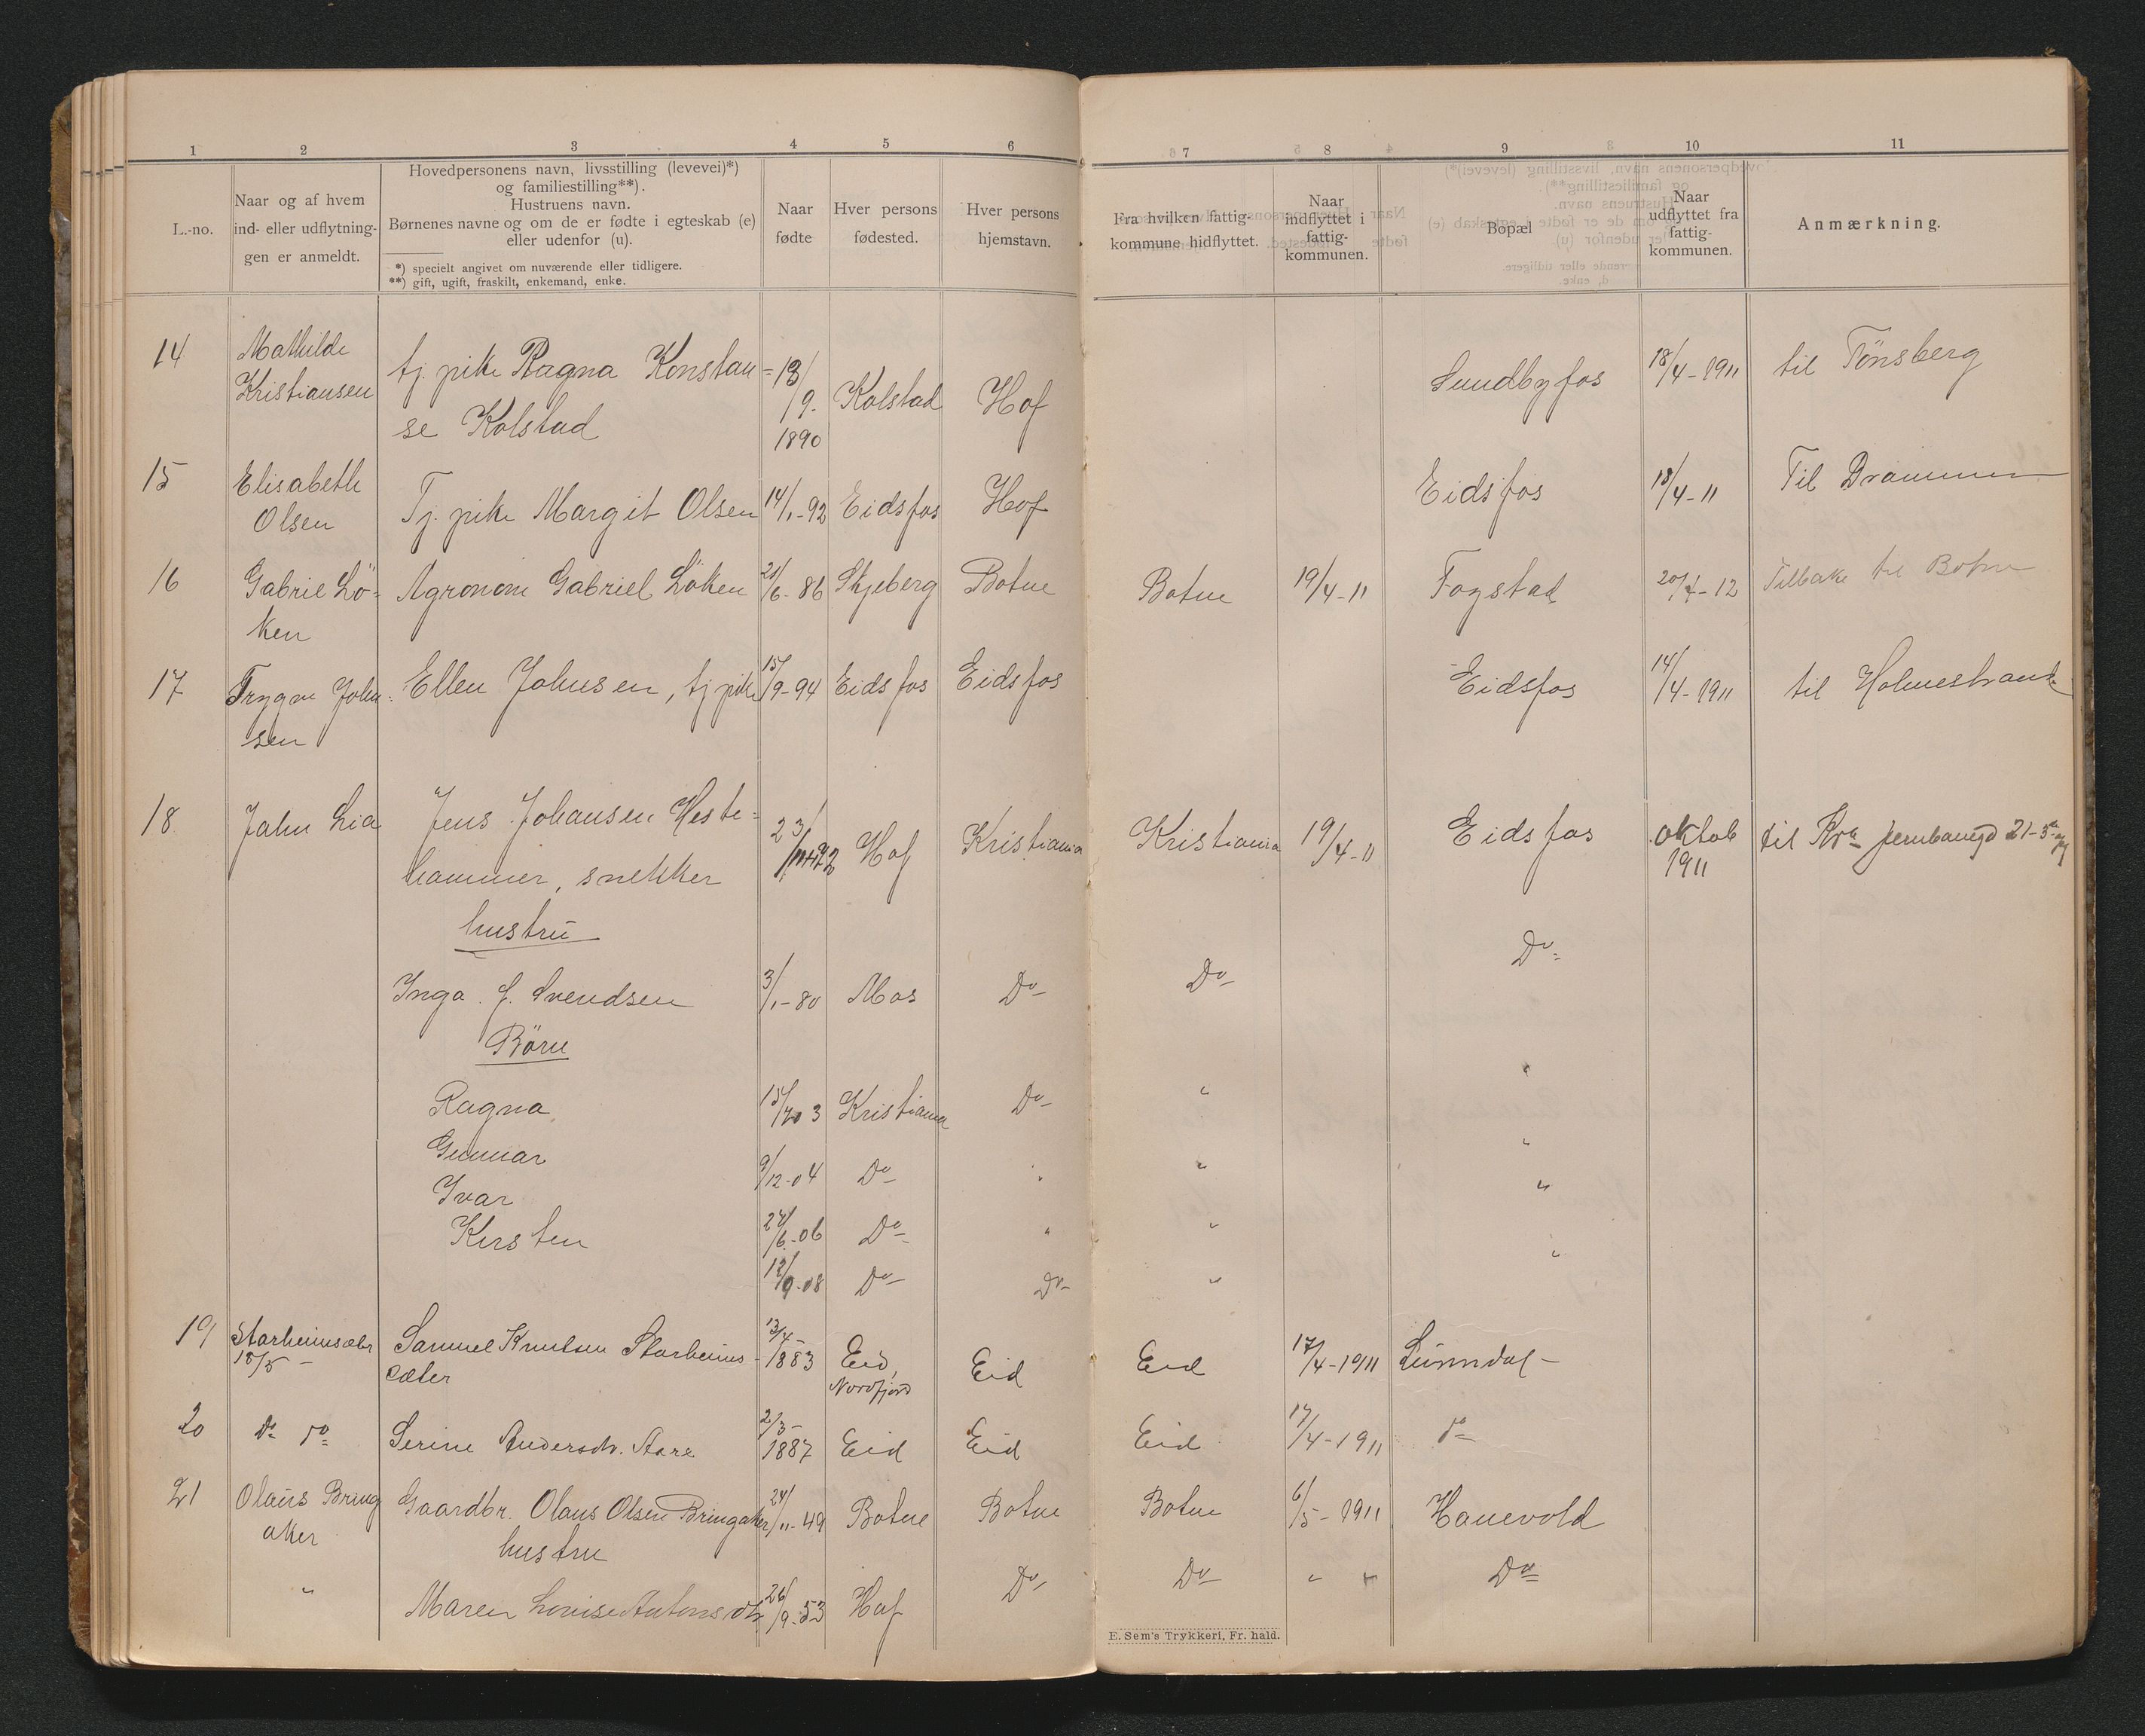 1 2 3 4 5 6 7 8 9 10 11
L.-no.
Naar og af hvem
ind- eller udflytnin-
gen er anmeldt.
Hovedpersonens navn, livsstilling (levevei)*)
og familiestilling**).
Hustruens navn.
Børnenes navne og om de er fødte i egteskab (e)
eller udenfor (u).
*) specielt angivet om nuværende eller tidligere.
**) gift, ugift, fraskilt, enkemand, enke.
Naar
fødte
Hver persons
fødested.
Hver persons
hjemstavn.
Fra hvilken fattig-
kommune hidflyttet.
Naar
indflyttet i
fattig-
kommunen.
Bopæl
Naar
udflyttet fra
fattig-
kommunen.
Anmærkning.
14 Mathilde
Kristiansen
tj. pike Ragna Konstan=
se Kolstad
13/9. 1890
Kolstad Hof Sundbyfos 18/4-1911 til Tönsberg
15 Elisabeth
Olsen
Tj. pike Margit Olsen 14/1-92 Eidsfos Hof Eidsfos 18/4-11 Til Drammen
16 Gabriel Lö-
ken
Agronom Gabriel Löken 21/6-86 Skjeberg Botne Botne 19/4-11 Fogstad 20/4-12 Tilbake til Botne
17 Trygve John
sen
Ellen Johnsen, tj pike 15/9-94 Eidsfos Eidsfos Eidsfos 14/4-1911 til Holmestrand
18 Jahn Lia
Jens Johansen Heste-
hammer, snekker
23/ Hof Kristiania Kristiania 19/4-11 Eidsfos oktob
1911
til Kra jernbanegd 21-5
hustru
Inga J. Svendsen 3/1-80 Mos Do Do Do
Börn
Ragna 15/ 3 Kristiania Do " "
Gunnar 9/12-04 Do " " "
Ivar 24/6-06 Do " " "
Kirsten 12/9-08 Do Do " "
19 Starheimsæter
18/5 -
Samuel Knutsen Starheims-
sæter
13/4-
1883
Eid,
Nordfjord
Eid Eid 17/4-1911 Sünndal-
20 do do Serine Andersdt. Aare 2/3-
1887
Eid Eid Eid 17/4-1911 do
21 Olaüs Bring
aker
Gaardbr. Olaus Olsen Bringaker 24/11-49 Botne Botne Botne 6/5-1911 Hanevold
hustru
" Maren Lovise Antonsdtr. 26/9-53 Hof Do Do " " Do
E. Sem's Trykkeri, Fr. hald.